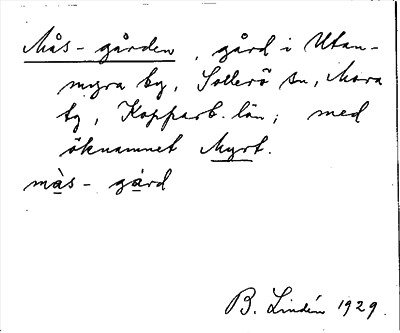 Mås-gården, gård i Utan-
myra by, Sollerö sn, Mora
tg, Kopparb. län; med
öknamnet Myrt.
mås- gård
B. Lindén 1929.